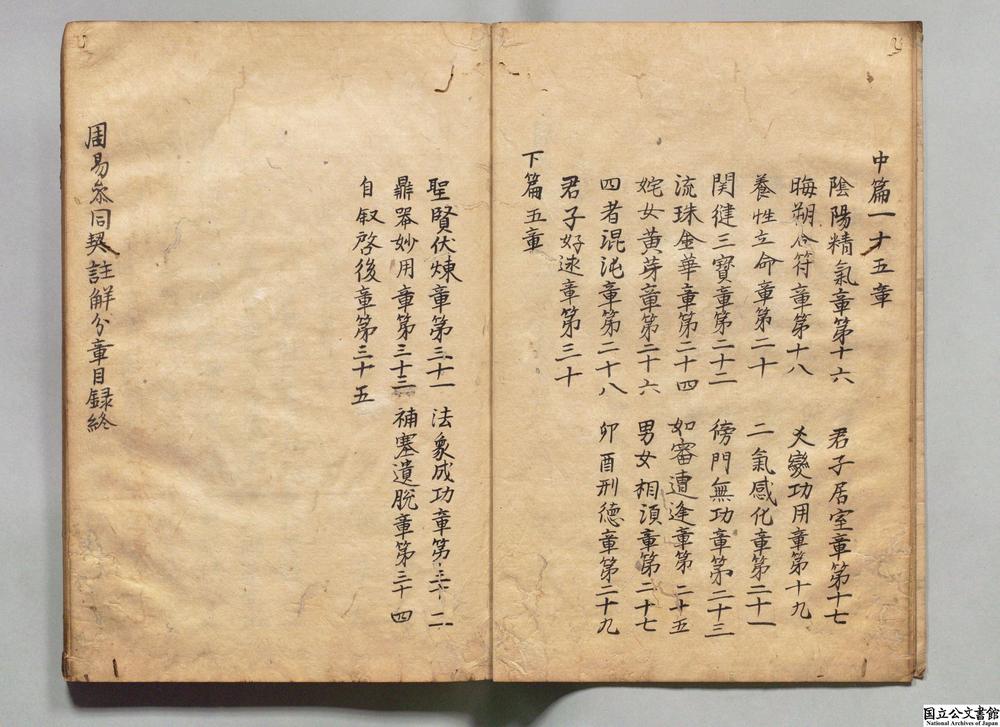 中篇一十五章
陰陽精氣章第十六 君子居室章第十七
晦朔合符章第十八 爻變功用章第十九
養性立命章第二十 二氣感化章第二十一
関鍵三寳章第二十二 傍門無功章第二十三
流珠金華章第二十四 如審遭逢章第二十五
姹女黄芽章第二十六 男女相湏章第二十七
四者混沌章第二十八 卯酉刑徳章第二十九
君子好逑章第三十
下篇五章
聖賢伏煉章第三十一 法象成功章第三十二
鼎器妙用章第三十三 補塞遺脫章第三十四
自叙啓後章第三十五
周易叅同契註解分章目録終
国立公文書館
National Archives of Japan